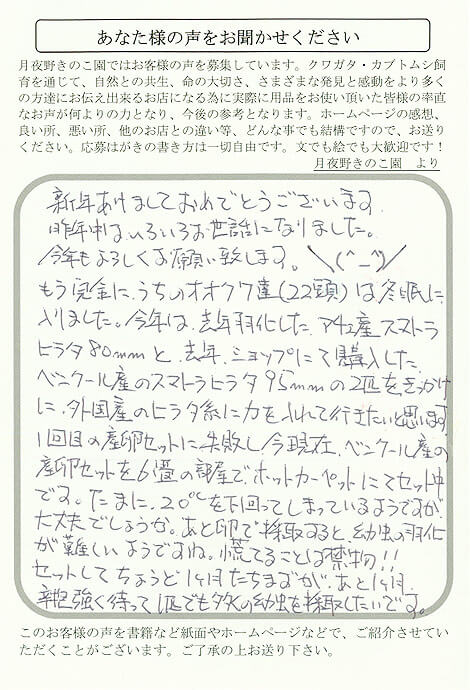 あなた様の声をお聞かせください
月夜野きのこ園ではお客様の声を募集しています。クワガタ・カブトムシ飼
育を通じて、自然との共生、命の大切さ、さまざまな発見と感動をより多く
の方達にお伝え出来るお店になる為に実際に用品をお使い頂いた皆様の率直
なお声が何よりの力となり、今後の参考となります。ホームページの感想、
良い所、悪い所、他のお店との違い等、どんな事でも結構ですので、お送り
ください。応募はがきの書き方は一切自由です。文でも絵でも大歓迎です！
月夜野きのこ園　より
新年あけましておめでとうございます。
昨年中はいろいろお世話になりました。
今年もよろしくお願い致します。＼(^_^)／
もう完全に、うちのオオクワ達(22頭)は冬眠に
入りました。今年は、去年羽化した、アチェ産スマトラ
ヒラタ80mmと、去年、ショップにて購入した、
ベンクール産のスマトラヒラタ95mmの2匹をきっかけ
に、外国産のヒラタ系に力を入れて行きたいと思います。
1回目の産卵セットに失敗し、今現在、ベンクール産の
産卵セットを6畳の部屋で、ホットカーペットにてセット中
です。たまに、20℃を下回ってしまっているようですが、
大丈夫でしょうか。あと卵で採取すると、幼虫の羽化
が難しいようですね。慌てることは禁物!!
セットしてちょうど1ヶ月たちますが、あと1ヶ月、
辛抱強く待って1匹でも多くの幼虫を採取したいです。
このお客様の声を書籍など紙面やホームページなどで、ご紹介させてい
ただくことがございます。ご了承の上お送り下さい。